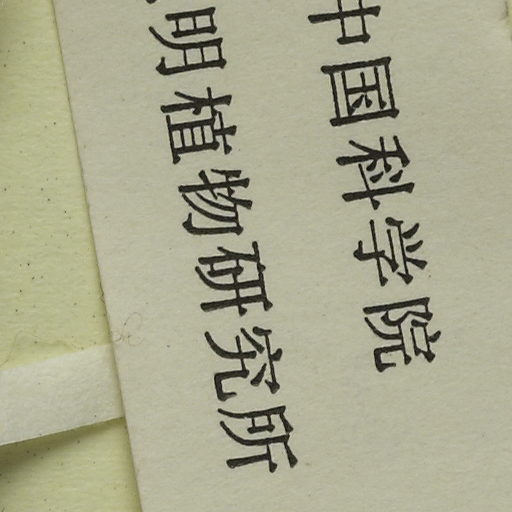 中国科学院
明植物研究所